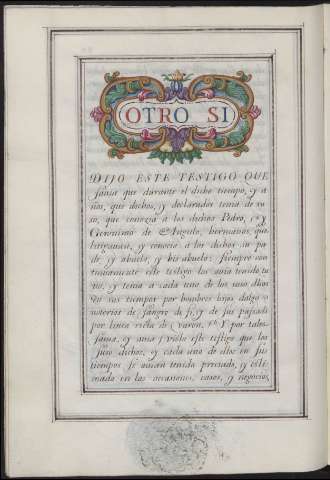 OTRO SI
DIJO ESTE TESTIGO QUE
sauia que durante el dicho tiempo, y a
ños, que dichos, y declarados tenia de vs
so, que conozia a los dichos Pedro, y
Geronimo de Angulo, hermanos, que
litigauan, y conocio a los dichos su pa
dre, y abuelo, y bis abuelo: siempre con
tinuamente este testigo los auia tenido tu
uo, y tenia a cada uno de los unos dellos
en sus tiempos por hombres hijos dalgo
notorios de sangre de si, y de sus pasados
por linea recta de varon. Y por tales
sauia, y auia visto este testigo que los
suso dichos, y cada uno dellos en sus
tiempos se auian tenido preciado, y esti
mado en las occasiones, casos, y negocios